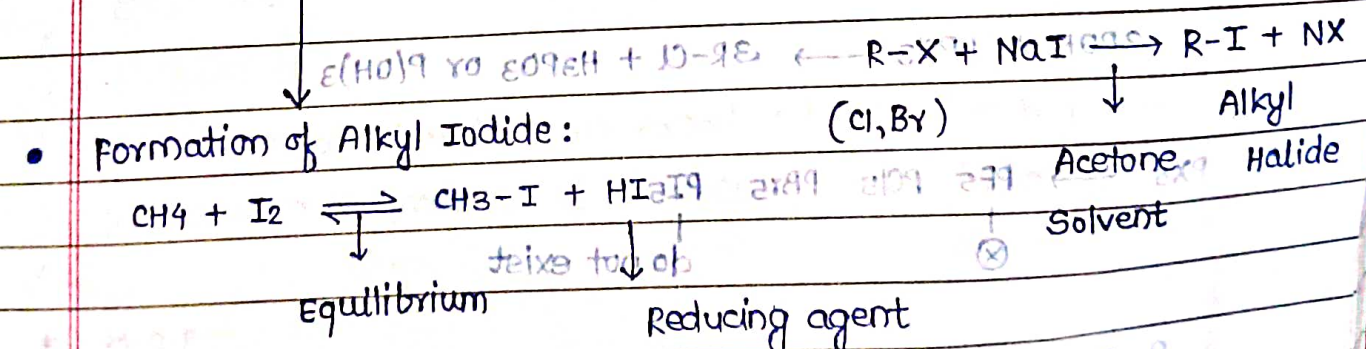 R-X + NaI → R-I + NX
(Cl, Br) ↓ Alkyl
Acetone Halide
Solvent
• Formation of Alkyl Iodide :
CH4 + I2 ⇌ CH3-I + HI
Equilibrium
Reducing agent